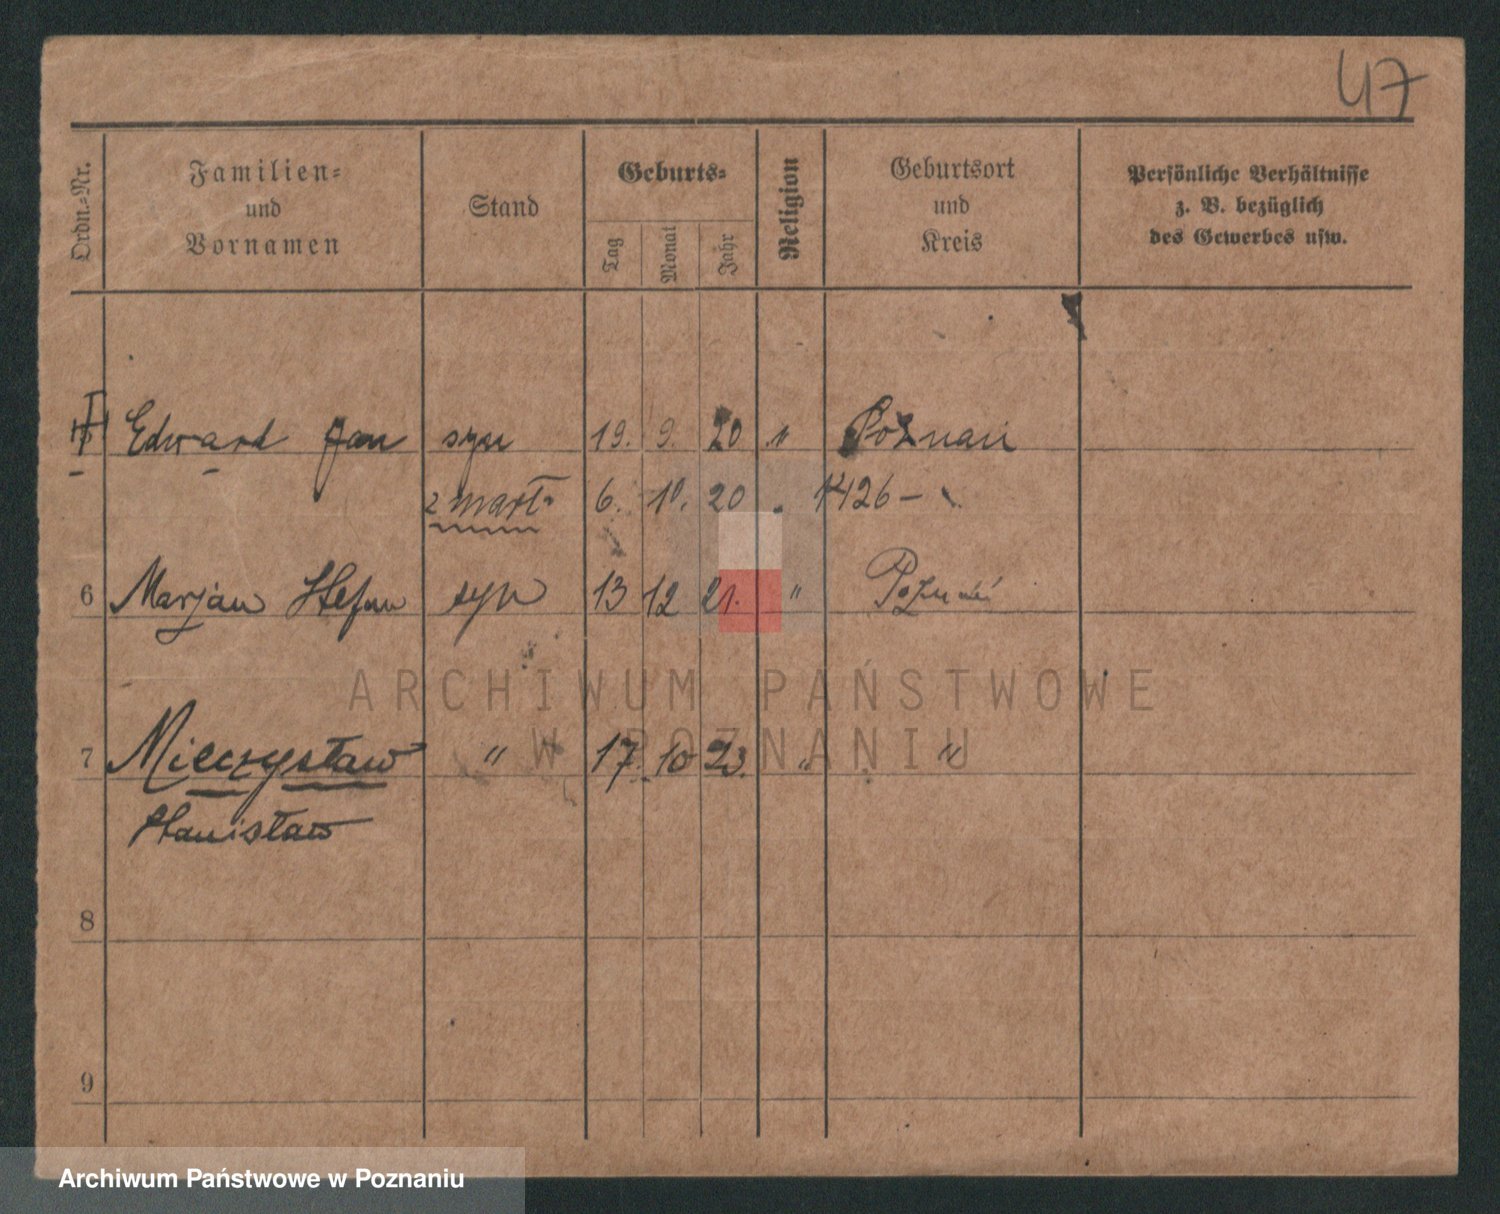 47
Ordn.-Nr.
Familien-
und
Vornamen
Stand
Geburts-
Tag
Monat
Jahr
Religion
Geburtsort
und
Kreis
Persönliche Verhältnisse
z. B. bezüglich
des Gewerbes usw.
Edward Jan syn 19. 9. 20 " Poznań
zmarł 6. 10. 20 " 1426 –
6 Marjan Stefan syn 13 12 21. " Poznań
ARCHIWUM PAŃSTWOWE
W POZNANIU
7 Mieczysław " 17. 10 23. " "
Stanisław
8
9
Archiwum Państwowe w Poznaniu